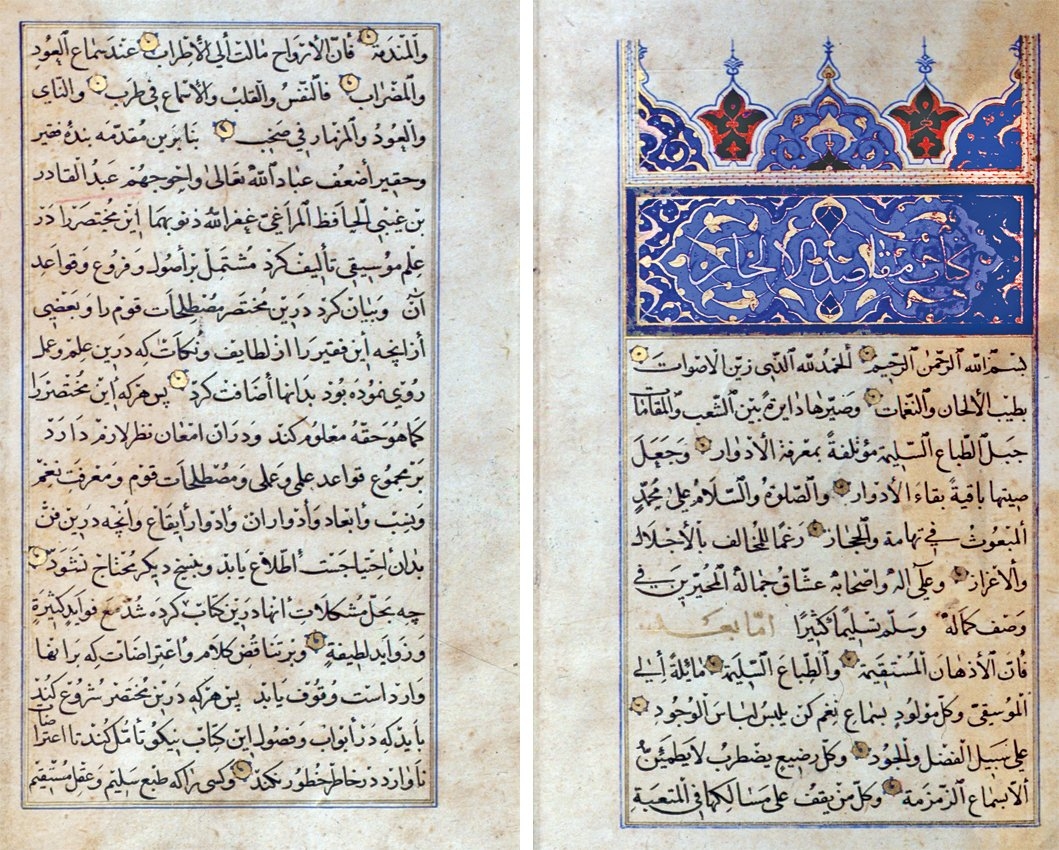 كتاب مقاصد الالحان
بسم الله الرحمن الرحيم الحمد لله الذي زين الاصوات
بطيب الالحان والنغمات وصيرها دايرة بين الشعب والمقامات
جبل الطباع السليمة مؤتلفة بمعرفة الأدوار وجعل
صيتها باقية بقاء الأدوار والصلوة والسلام على محمد
المبعوث في تهامة والحجاز رغما للمخالف بالأجلال
والأعزاز وعلى اله واصحابه عشاق جماله المحيرين في
وصف كماله وسلم تسليما كثيرا اما بعد
فان الأذهان المستقيمة والطباع السليمة مايلة إلى
الموسيقى وكل مولود بسماع نغم كن يلبس لباس الوجود
على سبيل الفضل والجود وكل رضيع يضطرب لا يطمئن
ألا بسماع الزمزمة وكل من يقف على مسالكها في المتعبة
والمندمة فان الأرواح مالت الي الأطراب عند سماع العود
والمضراب فالنفس والقلب والأسماع في طرب والناي
والعود والمزمار في صخب بنا برين مقدمه بنده فقير
وحقير أضعف عباد الله تعالى واحوجهم عبد القادر
بن غيبي الحافظ المراغي غفر الله ذنوبهما اين مختصر را در
علم موسيقى تأليف كرد مشتمل بر أصول وفروع وقواعد
آن وبيان كرد درين مختصر مصطلحات قوم را وبعضي
از آنچه اين فقير را از لطايف ونكات كه درين علم وعمل
روي نموده بود بدانها أضافت كرد پس هر كه اين مختصر را
كما هو حقه معلوم كند ودران امعان نظر لازم دارد
بر مجموع قواعد علمي وعملي ومصطلحات قوم ومعرفت نغم
ونسب وأبعاد وأدوار ان وأدوار أيقاع وآنچه درين فن
بدان أحتياجست أطلاع يابد وبنسخ ديكر محتاج نشود
چه بحل مشكلات انها درين كتاب كرده شد مع فوايد كثيرة
وزوايد لطيفة وبر تناقض كلام وأعتراضات كه بر انها
وارد است وقوف يابد پس هر كه درين مختصر شروع كند
بايد كه در أبواب وفصول اين كتاب نيكو تأمل كند تا اعتراضات
ناوارد در خاطر خطور نكند وكسى را كه طبع سليم وعقل مستقيم